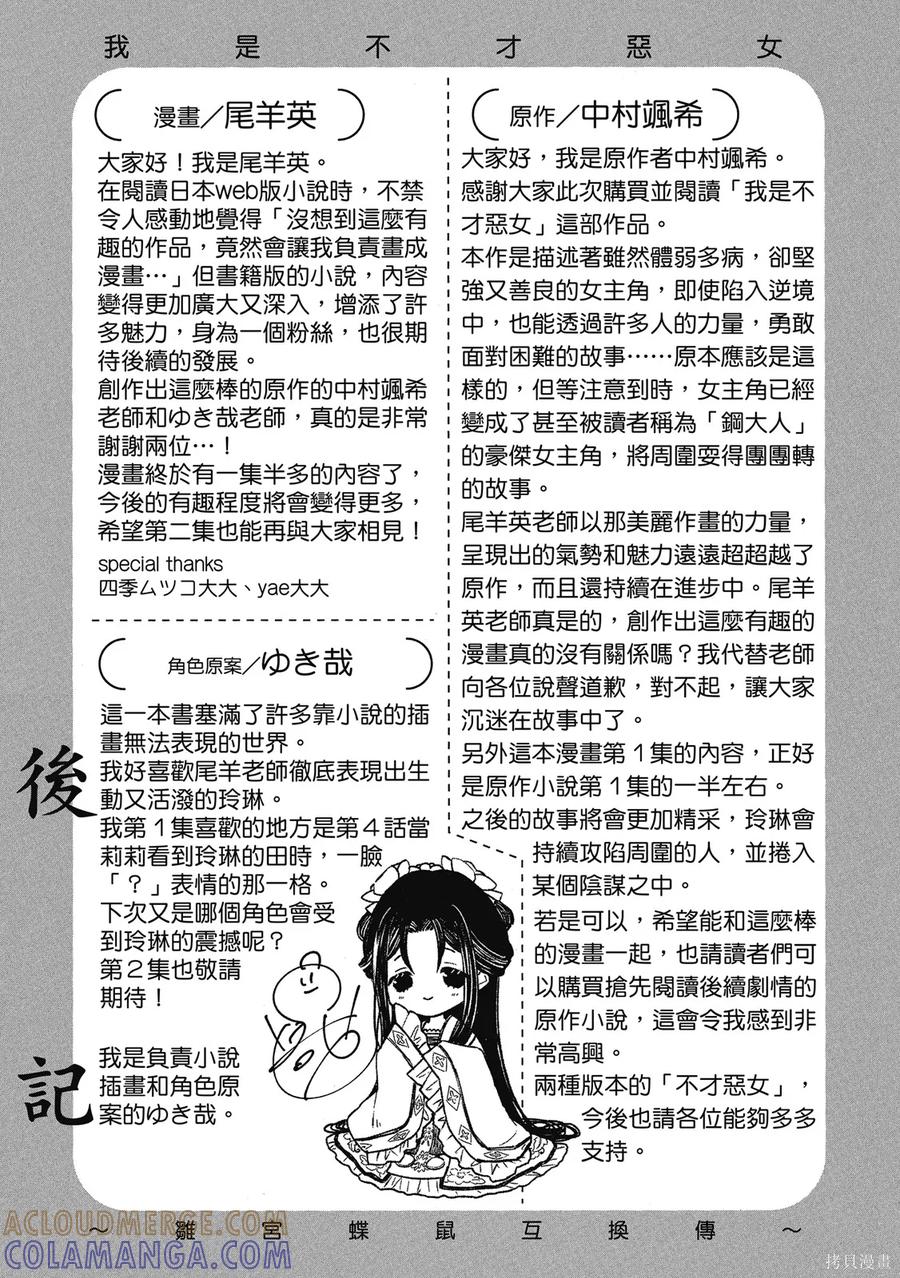 我是不才惡女
原作／中村颯希
大家好，我是原作者中村颯希。
感謝大家此次購買並閱讀「我是不
才惡女」這部作品。
本作是描述著雖然體弱多病，卻堅
強又善良的女主角，即使陷入逆境
中，也能透過許多人的力量，勇敢
面對困難的故事……原本應該是這
樣的，但等注意到時，女主角已經
變成了甚至被讀者稱為「鋼大人」
的豪傑女主角，將周圍耍得團團轉
的故事。
尾羊英老師以那美麗作畫的力量，
呈現出的氣勢和魅力遠遠超超越了
原作，而且還持續在進步中。尾羊
英老師真是的，創作出這麼有趣的
漫畫真的沒有關係嗎？我代替老師
向各位說聲道歉，對不起，讓大家
沉迷在故事中了。
另外這本漫畫第１集的內容，正好
是原作小說第１集的一半左右。
之後的故事將會更加精采，玲琳會
持續攻陷周圍的人，並捲入
某個陰謀之中。
若是可以，希望能和這麼棒
的漫畫一起，也請讀者們可
以購買搶先閱讀後續劇情的
原作小說，這會令我感到非
常高興。
兩種版本的「不才惡女」，
今後也請各位能夠多多
支持。
漫畫／尾羊英
大家好！我是尾羊英。
在閱讀日本web版小說時，不禁
令人感動地覺得「沒想到這麼有
趣的作品，竟然會讓我負責畫成
漫畫…」但書籍版的小說，內容
變得更加廣大又深入，增添了許
多魅力，身為一個粉絲，也很期
待後續的發展。
創作出這麼棒的原作的中村颯希
老師和ゆき哉老師，真的是非常
謝謝兩位…！
漫畫終於有一集半多的內容了，
今後的有趣程度將會變得更多，
希望第二集也能再與大家相見！
special thanks
四季ムツコ大大、yae大大
角色原案／ゆき哉
這一本書塞滿了許多靠小說的插
畫無法表現的世界。
我好喜歡尾羊老師徹底表現出生
動又活潑的玲琳。
我第１集喜歡的地方是第４話當
莉莉看到玲琳的田時，一臉
「？」表情的那一格。
下次又是哪個角色會受
到玲琳的震撼呢？
第２集也敬請
期待！
我是負責小說
插畫和角色原
案的ゆき哉。
後記
～雛宮蝶鼠互換傳～
ACLOUDMERGE.COM
COLAMANGA.COM
拷貝漫畫